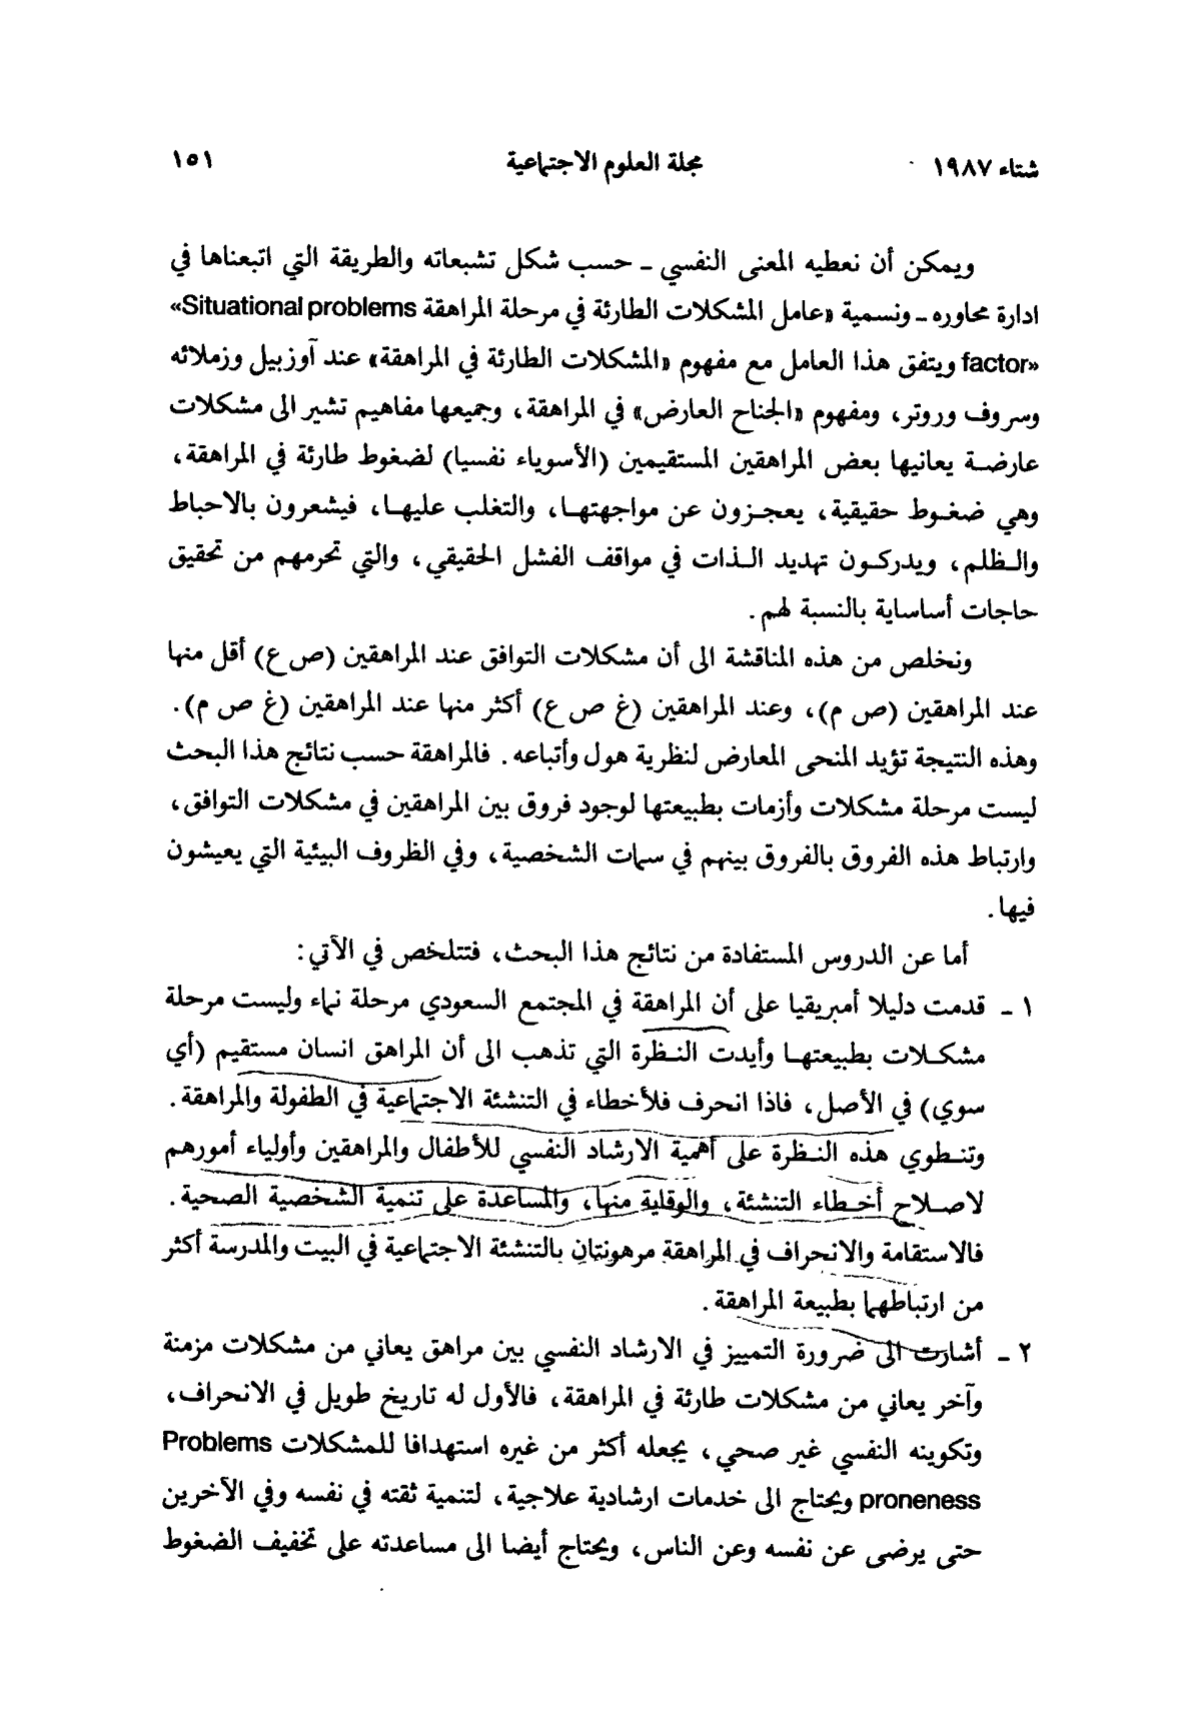 شتاء ١٩٨٧
مجلة العلوم الاجتماعية
١٥١
ويمكن أن نعطيه المعنى النفسي ـ حسب شكل تشبعاته والطريقة التي اتبعناها في
ادارة محاوره ـ ونسمية «عامل المشكلات الطارئة في مرحلة المراهقة Situational problems»
«factor ويتفق هذا العامل مع مفهوم «المشكلات الطارئة في المراهقة» عند آوزبيل وزملائه
وسروف وروتر، ومفهوم «الجناح العارض» في المراهقة، وجميعها مفاهيم تشير الى مشكلات
عارضة يعانيها بعض المراهقين المستقيمين (الأسوياء نفسيا) لضغوط طارئة في المراهقة،
وهي ضغوط حقيقية، يعجزون عن مواجهتها، والتغلب عليها، فيشعرون بالاحباط
والظلم، ويدركون تهديد الذات في مواقف الفشل الحقيقي، والتي تحرمهم من تحقيق
حاجات أساساية بالنسبة لهم.
ونخلص من هذه المناقشة الى أن مشكلات التوافق عند المراهقين (ص ع) أقل منها
عند المراهقين (ص م)، وعند المراهقين (غ ص ع) أكثر منها عند المراهقين (غ ص م).
وهذه النتيجة تؤيد المنحى المعارض لنظرية هول وأتباعه. فالمراهقة حسب نتائج هذا البحث
ليست مرحلة مشكلات وأزمات بطبيعتها لوجود فروق بين المراهقين في مشكلات التوافق،
وارتباط هذه الفروق بالفروق بينهم في سمات الشخصية، وفي الظروف البيئية التي يعيشون
فيها.
أما عن الدروس المستفادة من نتائج هذا البحث، فتتلخص في الآتي:
١ ـ قدمت دليلا أمبريقيا على أن المراهقة في المجتمع السعودي مرحلة نماء وليست مرحلة
مشكلات بطبيعتها وأيدت النظرة التي تذهب الى أن المراهق انسان مستقيم (أي
سوي) في الأصل، فاذا انحرف فلأخطاء في التنشئة الاجتماعية في الطفولة والمراهقة.
وتنطوي هذه النظرة على أهمية الارشاد النفسي للأطفال والمراهقين وأولياء أمورهم
لاصلاح أخطاء التنشئة، والوقاية منها، والمساعدة على تنمية الشخصية الصحية.
فالاستقامة والانحراف في المراهقة مرهونتان بالتنشئة الاجتماعية في البيت والمدرسة أكثر
من ارتباطهما بطبيعة المراهقة.
٢ ـ أشارت الى ضرورة التمييز في الارشاد النفسي بين مراهق يعاني من مشكلات مزمنة
وآخر يعاني من مشكلات طارئة في المراهقة، فالأول له تاريخ طويل في الانحراف،
وتكوينه النفسي غير صحي، يجعله أكثر من غيره استهدافا للمشكلات Problems
proneness ويحتاج الى خدمات ارشادية علاجية، لتنمية ثقته في نفسه وفي الآخرين
حتى يرضى عن نفسه وعن الناس، ويحتاج أيضا الى مساعدته على تخفيف الضغوط